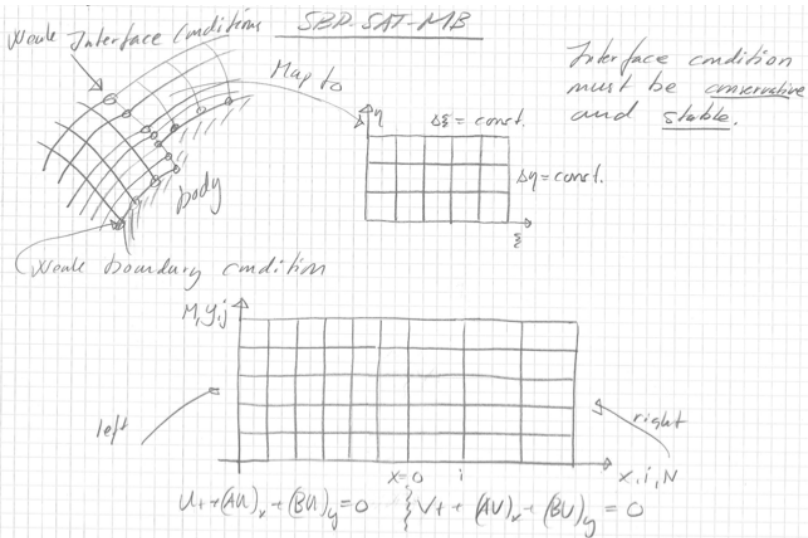 SBP-SAT-MB
Weak Interface Conditions
Map to
Interface condition
must be conservative
and stable.
η
Δξ = const.
Δη = const.
ξ
body
Weak boundary condition
M, y, j
left
right
x=0
i
x, i, N
Ut + (AU)x + (BU)y = 0
Vt + (AV)x + (BV)y = 0